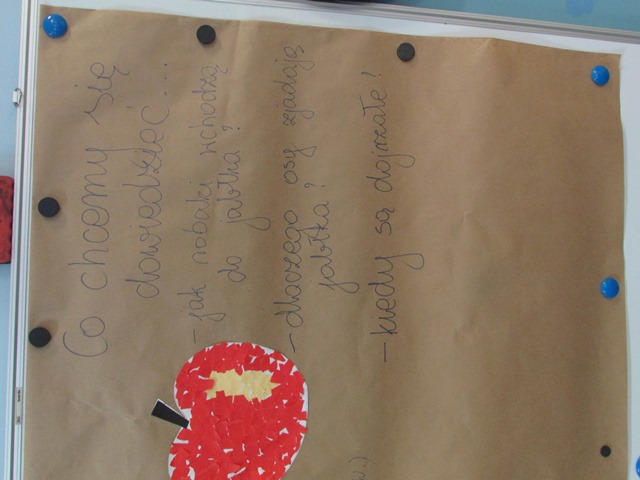 Co chcemy się
dowiedzieć...
- jak robaki wchodzą
do jabłka?
- dlaczego osy zjadają
jabłka?
- kiedy są dojrzałe?